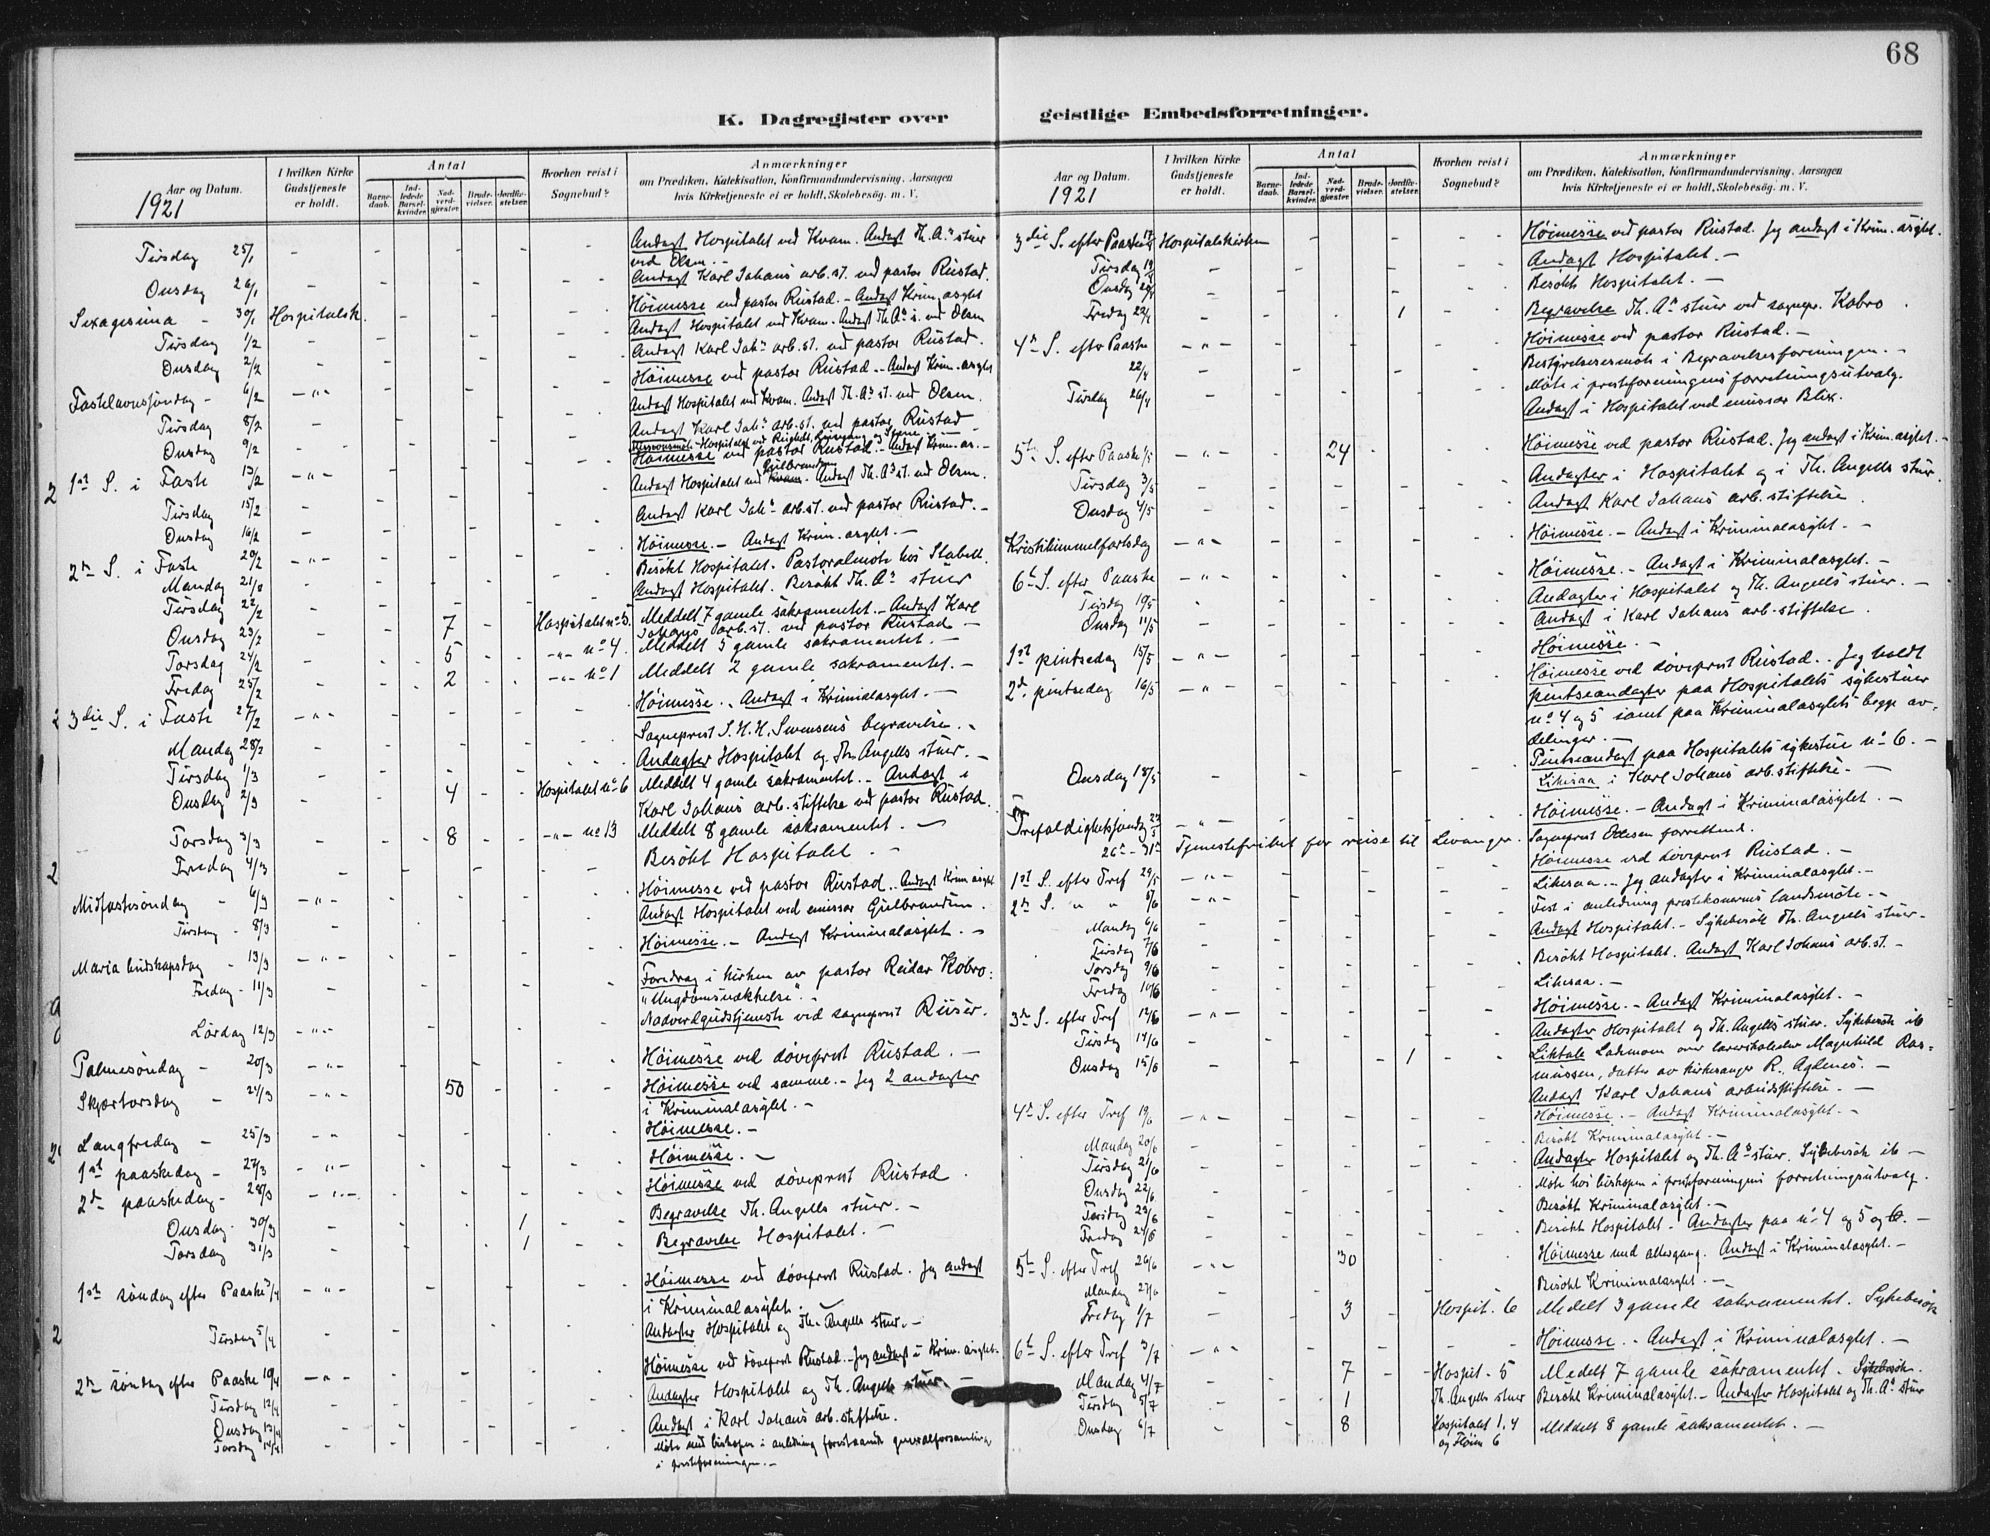 68
K. Dagregister over geistlige Embedsforretninger.
Aar og Datum.
I hvilken Kirke Gudstjeneste er holdt.
Antal
Barnedaab.
Indledede Barselkvinder.
Nadverdgjæster.
Brudevielser.
Jordfæstelser.
Hvorhen reist i Sognebud?
Anmærkninger
om Prædiken, Katekisation, Konfirmandundervisning, Aarsagen
hvis Kirketjeneste ei er holdt, Skolebesøg, m. V.
1921
Tirsdag 25/1 - - - - Andagt Hospitalet ved Kvam. Andagt Th. A's stuer
ved Olsen. -
Onsdag 26/1 - Andagt Karl Johans arb.st. ved pastor Rustad.
Sexagesima - 30/1 Hospitalsk. Höimesse ved pastor Rustad. - Andagt Krim. asylet
Tirsdag 1/2 - Andagt Hospitalet ved Kvam. Andagt Th. A's s. ved Olsen
Onsdag 2/2 - Andagt Karl Joh's arb.st. ved pastor Rustad.
Fastelavnssöndag - 6/2 - " - Höimesse ved pastor Rustad. - Andagt Krim. asylet
Tirsdag 8/2 - Andagt Hospitalet ved Kvam. Andagt Th. A's st. ved Olsen.
Onsdag 9/2 - Andagt Karl Joh's arb.st. ved pastor Rustad -
1st S. i Faste 13/2 - " - Höimesse ved pastor Rustad. Andagt Krim. as. -
Tirsdag 15/2 - Andagt Hospitalet ved Gulbrandsen. Andagt Th. A's st. ved Olsen.
Onsdag 16/2 - Andagt Karl Joh's arb.st. ved pastor Rustad. -
2n S. i Faste 20/2 - " - Höimesse. - Andagt Krim. asylet. -
Mandag 21/2 - Besökt Hospitalet. Pastoralmöte hos Stabell.
Tirsdag 22/2 - Andagt Hospitalet. Besökt Th. A's stuer
Onsdag 23/2 - 7 - Hospitalet no 5. Meddelt 7 gamle sakramentet. - Andagt Karl
Johans arb.st. ved pastor Rustad -
Torsdag 24/2 - 5 - - " - no 4. Meddelt 5 gamle sakramentet. -
Fredag 25/2 - 2 - - " - no 1 Meddelt 2 gamle sakramentet. -
3die S. i Faste 27/2 - " - Höimesse. - Andagt i Kriminalasylet. -
Mandag 28/2 - Sogneprest S. H. H. Svensens begravelse. -
Tirsdag 1/3 - Andagter Hospitalet og Th. Angells stuer. -
Onsdag 2/3 - 4 - Hospitalet no 6 Meddelt 4 gamle sakramentet. - Andagt i
Karl Johans arb. stiftelse ved pastor Rustad.
Torsdag 3/3 - 8 - - " - no 13 Meddelt 8 gamle sakramentet. -
Fredag 4/3 - Besökt Hospitalet. -
Midfastesöndag - 6/3 - " - Höimesse ved pastor Rustad. Andagt Krim asylet
Tirsdag - 8/3 - Andagt Hospitalet ved emissær Gulbrandsen.
Maria budskapsdag - 13/3 - " - Höimesse. - Andagt Kriminalasylet. -
Fredag - 11/3 - Foredrag i kirken av pastor Reidar Kobro:
"Ungdomsvækkelse". -
Lördag 12/3 - " - Nadverdgudstjeneste ved sogneprest Riiser.
Palmesöndag - 20/3 - " - Höimesse ved döveprest Rustad. -
Skjærtorsdag - 24/3 - " - 50 - Höimesse ved samme. - Jeg 2 andagter
i Kriminalasylet. -
Langfredag - 25/3 - " Höimesse. -
1st paaskedag - 27/3 - " - Höimesse. -
2d paaskedag - 28/3 - " - Höimesse ved döveprest Rustad
Onsdag - 30/3 - 1 - Begravelse Th. Angells stuer. -
Torsdag 31/3 - 1 - Begravelse Hospitalet. -
1st söndag efter Paaske 3/4 - " - Höimesse ved döveprest Rustad. Jeg andagt
i Kriminalasylet. -
Tirsdag 5/4 - Andagter Hospitalet og Th. Angells stuer. -
2n söndag efter Paaske 10/4 - " - Höimesse ved döveprest Rustad. - Jeg andagt i Krim. asylet.
Tirsdag 12/4 - Andagter Hospitalet og Th. Angells stuer. -
Onsdag 13/4 - Andagt i Karl Johans arb. stiftelse.
Torsdag 14/4 - Möte med biskopen i anledning forestaaende generalforsamling
i presteforeningen. -
Aar og Datum.
I hvilken Kirke Gudstjeneste er holdt.
Antal
Barnedaab.
Indledede Barselkvinder.
Nadverdgjæster.
Brudevielser.
Jordfæstelser.
Hvorhen reist i Sognebud?
Anmærkninger
om Prædiken, Katekisation, Konfirmandundervisning, Aarsagen
hvis Kirketjeneste ei er holdt, Skolebesög, m. V.
1921
3die S. efter Paaske 17/4 Hospitalskirken Höimesse ved pastor Rustad. Jeg andagt i Krim. asylet.
Tirsdag 19/4 - Andagt Hospitalet. -
Onsdag 20/4 - Besökt Hospitalet. -
Fredag 22/4 - 1 - Begravelse Th. A's stuer ved sognepr. Kobro.
4n S. efter Paaske - " - Höimesse ved pastor Rustad. -
22/4 - Bestyrelsesmöte i Begravelsesforeningen. -
Möte i presteforeningens forretningsutvalg.
Tirsdag 26/4 - Andagt i Hospitalet ved emissær Blix.
5te S. efter Paaske 1/5 - " - 24 - Höimesse ved pastor Rustad. Jeg andagt i Krim. asylet. -
Tirsdag 3/5 - Andagter i Hospitalet og i Th. Angells stuer.
Onsdag 4/5 - Andagt Karl Johans arb. stiftelse.
Kristihimmelfartsdag - " - Höimesse. - Andagt i Kriminalasylet. -
6te S. efter Paaske - " - Höimesse. - Andagt i Kriminalasylet. -
Tirsdag 10/5 - Andagter i Hospitalet og Th. Angells stuer. -
Onsdag 11/5 - Andagt i Karl Johans arb. stiftelse.
1st pintsedag 15/5 - " - Höimesse. -
2d. pintsedag 16/5 - " - Höimesse ved döveprest Rustad. Jeg holdt
pintseandagter paa Hospitalets sykestuer
no 4 og 5 samt paa Kriminalasylets begge av-
delinger. -
Pintseandagt paa Hospitalets sykestue no 6. -
Onsdag 18/5 - Likesaa i Karl Johans arb. stiftelse. -
Trefoldighetssöndag 22/5 - " - Höimesse. - Andagt i Kriminalasylet. -
26de - 31te Tjenestefrihet for reise til Levanger. Sogneprest Odesen forrettend.
1st S. efter Tref 29/5 - " - Höimesse ved döveprest Rustad. -
2n S. " " 5/6 - " - Likesaa. - Jeg andagter i Kriminalasylet. -
Mandag 6/6 - Fest i anledning prestekonernes landsmöte. -
Tirsdag 7/6 - Andagt Hospitalet. - Sykebesök Th. Angells stuer -
Torsdag 9/6 - Besökt Hospitalet. Andagt Karl Johans arb. st. -
Fredag 10/6 - Likesaa. -
3de S. efter Tref 12/6 - " - Höimesse. - Andagt Kriminalasylet. -
Tirsdag 14/6 - Andagter Hospitalet og Th. Angells stuer. Sykebesök ib
Onsdag 15/6 - 1 - Liktale Lademoen over lærerskoleelev Magnhild Ras-
mussen, datter av kirkesanger R. Agdenes. -
Andagt Karl Johans arbeidsstiftelse. -
4de S. efter Tref 19/6 - " - Höimesse. - Andagt Kriminalasylet. -
Mandag 20/6 Besökt Kriminalasylet. -
Tirsdag 21/6 - Andagter Hospitalet og Th. A's stuer. Sykebesök ib -
Onsdag 22/6 - Möte hos biskopen i presteforeningens forretningsutvalg.
Torsdag 23/6 - Besökt Kriminalasylet. -
Fredag 24/6 - Besökt Hospitalet. - Andagter paa no 4 og 5 og 6. -
5te S. efter Tref 26/6 - " - 30 Höimesse med altergang. Andagt i Kriminalasylet. -
Mandag 27/6 Besökt Kriminalasylet. -
Fredag 1/7 - 3 - Hospit. 6 Medelt 3 gamle sakramentet. Sykebesök
6te S. efter Tref 3/7 - " - Höimesse. - Andagt i Kriminalasylet. -
Mandag 4/7 - 7 - Hospit. 5 Medelt 7 gamle sakramentet. Sykebesök.
Tirsdag 5/7 - 1 - Th. Angells stuer Besökt Kriminalasylet. - Andagter Hospitalet og Th. A's stuer
Onsdag 6/7 - 8 Hospitalet 1, 4 Meddelt 8 gamle sakramentet. -
og Höien 6